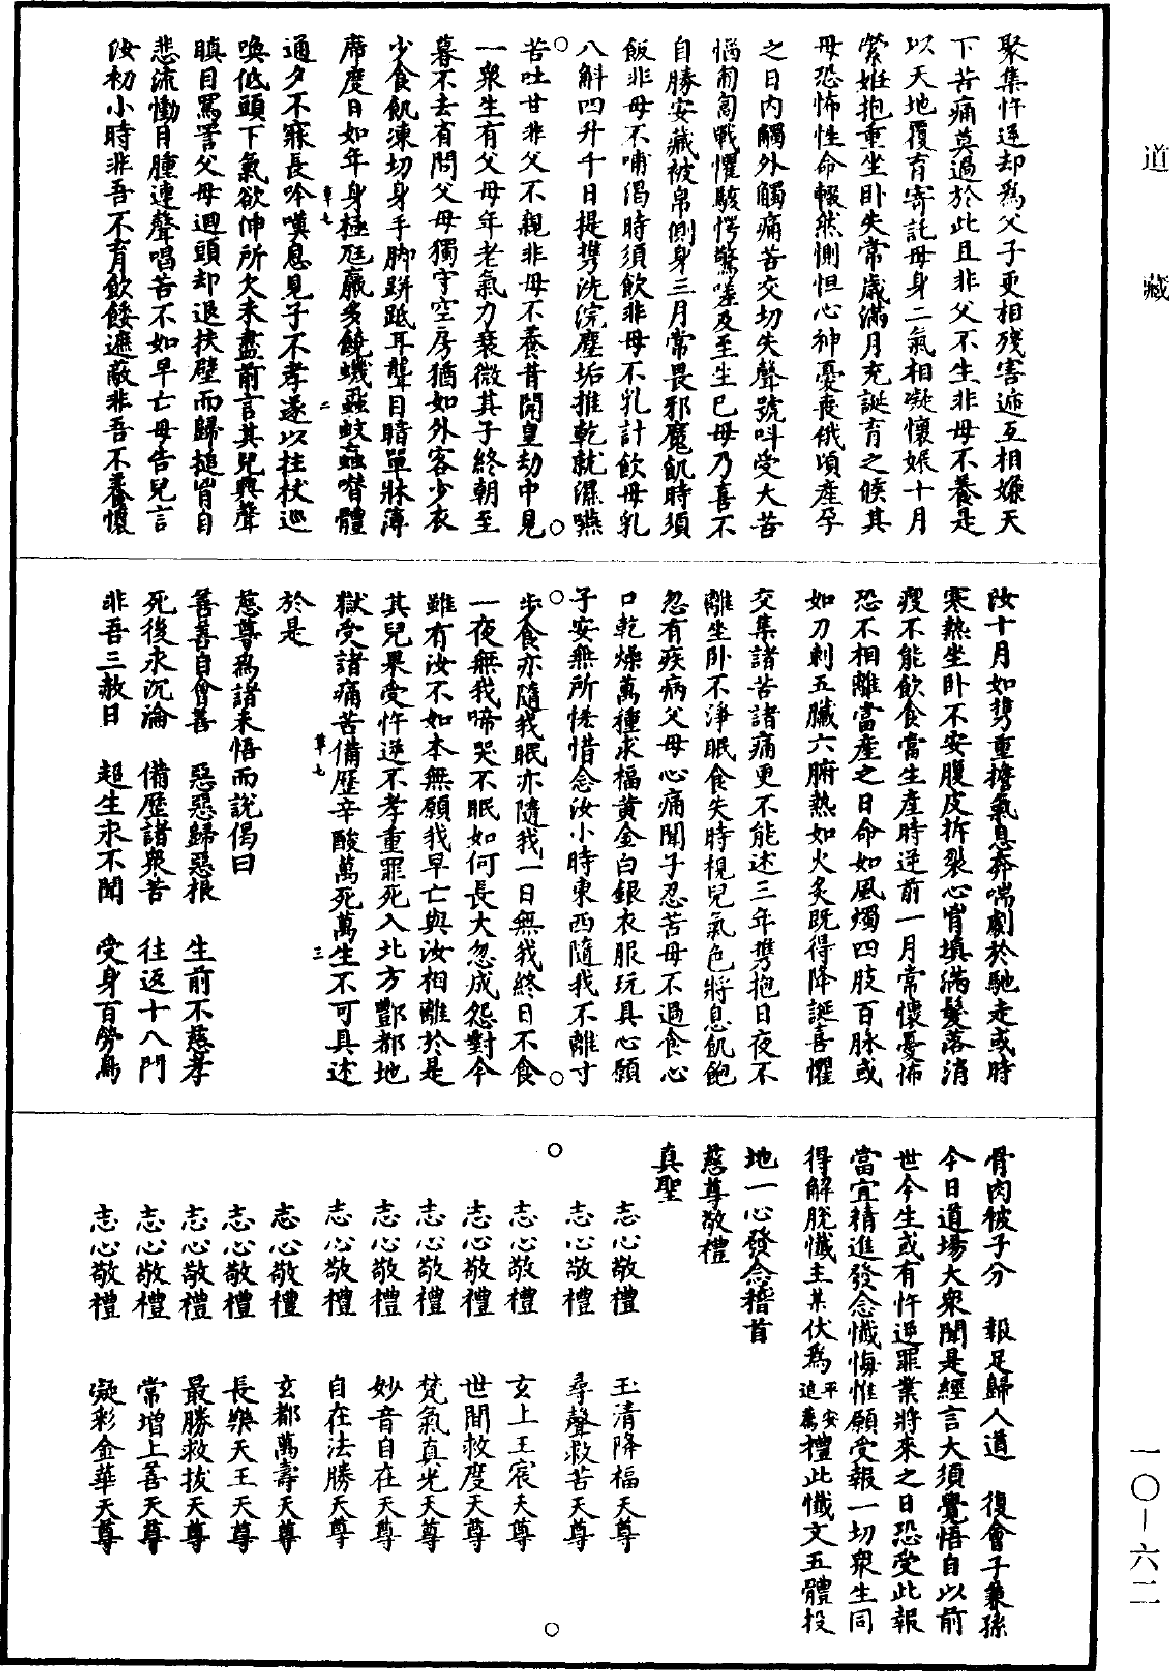 道藏
一〇—六二
聚集忤逆却為父子更相殘害遞互相嫌天
下苦痛莫過於此且非父不生非母不養是
以天地覆育寄託母身二氣相凝懷娠十月
縈姙抱重坐卧失常歲滿月充誕育之候其
母恐怖性命輟然惻怛心神憂喪俄頃產孕
之日內觸外觸痛苦交切失聲號呌受大苦
惱悶亂戰懼駭愕驚嗟及至生已母乃喜不
自勝安藏被帛側身三月常畏邪魔飢時須
飯非母不哺渴時須飲非母不乳計飲母乳
八斛四升千日提携洗浣塵垢推乾就濕嚥
苦吐甘非父不親非母不養昔開皇劫中見
一衆生有父母年老氣力衰微其子終朝至
暮不去有問父母獨守空房猶如外客少衣
少食飢凍切身手脚跰跡耳聾目暗單牀薄
席度日如年身極尫羸多饒蟣蝨蚊䖟噆體
草七 二
通夕不寐長吟嘆息見子不孝遂以拄杖巡
喚低頭下氣欲伸所欠未盡前言其兒興聲
瞋目罵詈父母迴頭却退扶壁而歸搥胷自
悲流慟目腫連聲唱苦不如早亡母告兒言
汝初小時非吾不育飲餧遮蔽非吾不養懷
汝十月如擕重擔氣息奔喘劇於馳走或時
寒熱坐卧不安腹皮拆裂心胷填滿髮落消
瘦不能飲食當生產時逆前一月常懷憂怖
恐不相離當產之日命如風燭四肢百脉或
如刀刺五臟六腑熱如火炙既得降誕喜懼
交集諸苦諸痛更不能述三年擕抱日夜不
離坐卧不淨眠食失時視兒氣色將息飢飽
忽有疾病父母心痛聞子忍苦母不過食心
口乾燥萬種求福黃金白銀衣服玩具心願
子安無所恡惜念汝小時東西隨我不離寸
步食亦隨我眠亦隨我一日無我終日不食
一夜無我啼哭不眠如何長大忽成怨對今
雖有汝不如本無願我早亡與汝相離於是
其兒果受忤逆不孝重罪死入北方酆都地
獄受諸痛苦備歷辛酸萬死萬生不可具述
草七 三
於是
慈尊為諸未悟而說偈曰
善善自會善　惡惡歸惡根　生前不慈孝
死後永沉淪　備歷諸衆苦　往返十八門
非吾三赦日　超生永不聞　受身百勞鳥
骨肉被子分　報足歸人道　復會子兼孫
今日道場大衆聞是經言大須覺悟自以前
世今生或有忤逆罪業將來之日恐受此報
當宜精進發念懺悔惟願受報一切衆生同
得解脫懺主某伏為平安追薦禮此懺文五體投
地一心發念稽首
慈尊敬禮
真聖
志心敬禮　玉清降福天尊
志心敬禮　尋聲救苦天尊
志心敬禮　玄上王宸天尊
志心敬禮　世間救度天尊
志心敬禮　梵氣真光天尊
志心敬禮　妙音自在天尊
志心敬禮　自在法勝天尊
志心敬禮　玄都萬壽天尊
志心敬禮　長樂天王天尊
志心敬禮　最勝救拔天尊
志心敬禮　常增上善天尊
志心敬禮　凝彩金華天尊